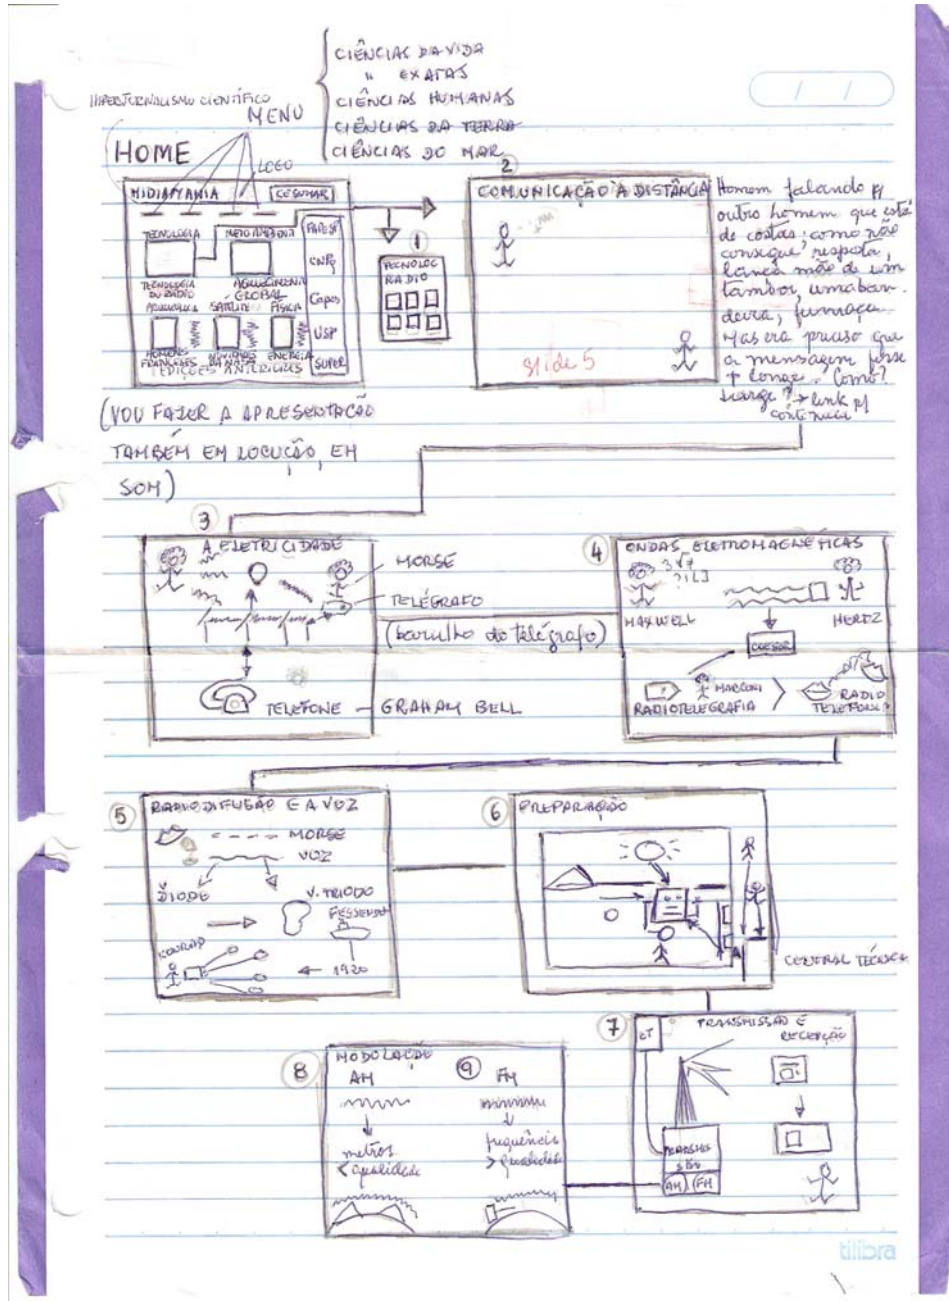 CIÊNCIAS DA VIDA
" EXATAS
CIÊNCIAS HUMANAS
CIÊNCIAS DA TERRA
CIÊNCIAS DO MAR
HIPERJORNALISMO CIENTÍFICO
MENU
/ /
HOME
LOGO
MIDIAMANIA
CESUMAR
TECNOLOGIA
MEIO AMBIENTE
FAPESP
CNPq
TECNOLOGIA
DO RÁDIO
AQUECIMENTO
GLOBAL
Capes
SATÉLITE
FÍSICA
USP
HOMENS
FRANCESES
DA NASA
ENERGIA
SUPER
EDIÇÕES ANTERIORES
1
TECNOLOG
RADIO
2
COMUNICAÇÃO À DISTÂNCIA
slide 5
Homem falando p/
outro homem que está
de costas; como não
consegue resposta,
lança mão de um
tambor, uma ban-
deira, fumaça.
Mas era preciso que
a mensagem fosse
+ longe. Como?
→ link p/
continua
(VOU FAZER A APRESENTAÇÃO
TAMBÉM EM LOCUÇÃO, EM
SOM)
3
A ELETRICIDADE
MORSE
TELÉGRAFO
(barulho do telégrafo)
TELEFONE - GRAHAM BELL
4
ONDAS ELETROMAGNÉTICAS
MAXWELL
HERTZ
COESOR
MARCONI
RADIOTELEGRAFIA
RADIO
TELEFONIA
5
RADIODIFUSÃO E A VOZ
MORSE
VOZ
DIODO
V. TRIODO
FESSENDEN
1920
6
PREPARAÇÃO
CENTRAL TÉCNICA
7
CT
TRANSMISSÃO E
RECEPÇÃO
TRANSMIS
SÃO
AM FM
8
MODOLAÇÃO
AM
9
FM
metros
< qualidade
frequência
> qualidade
tilibra